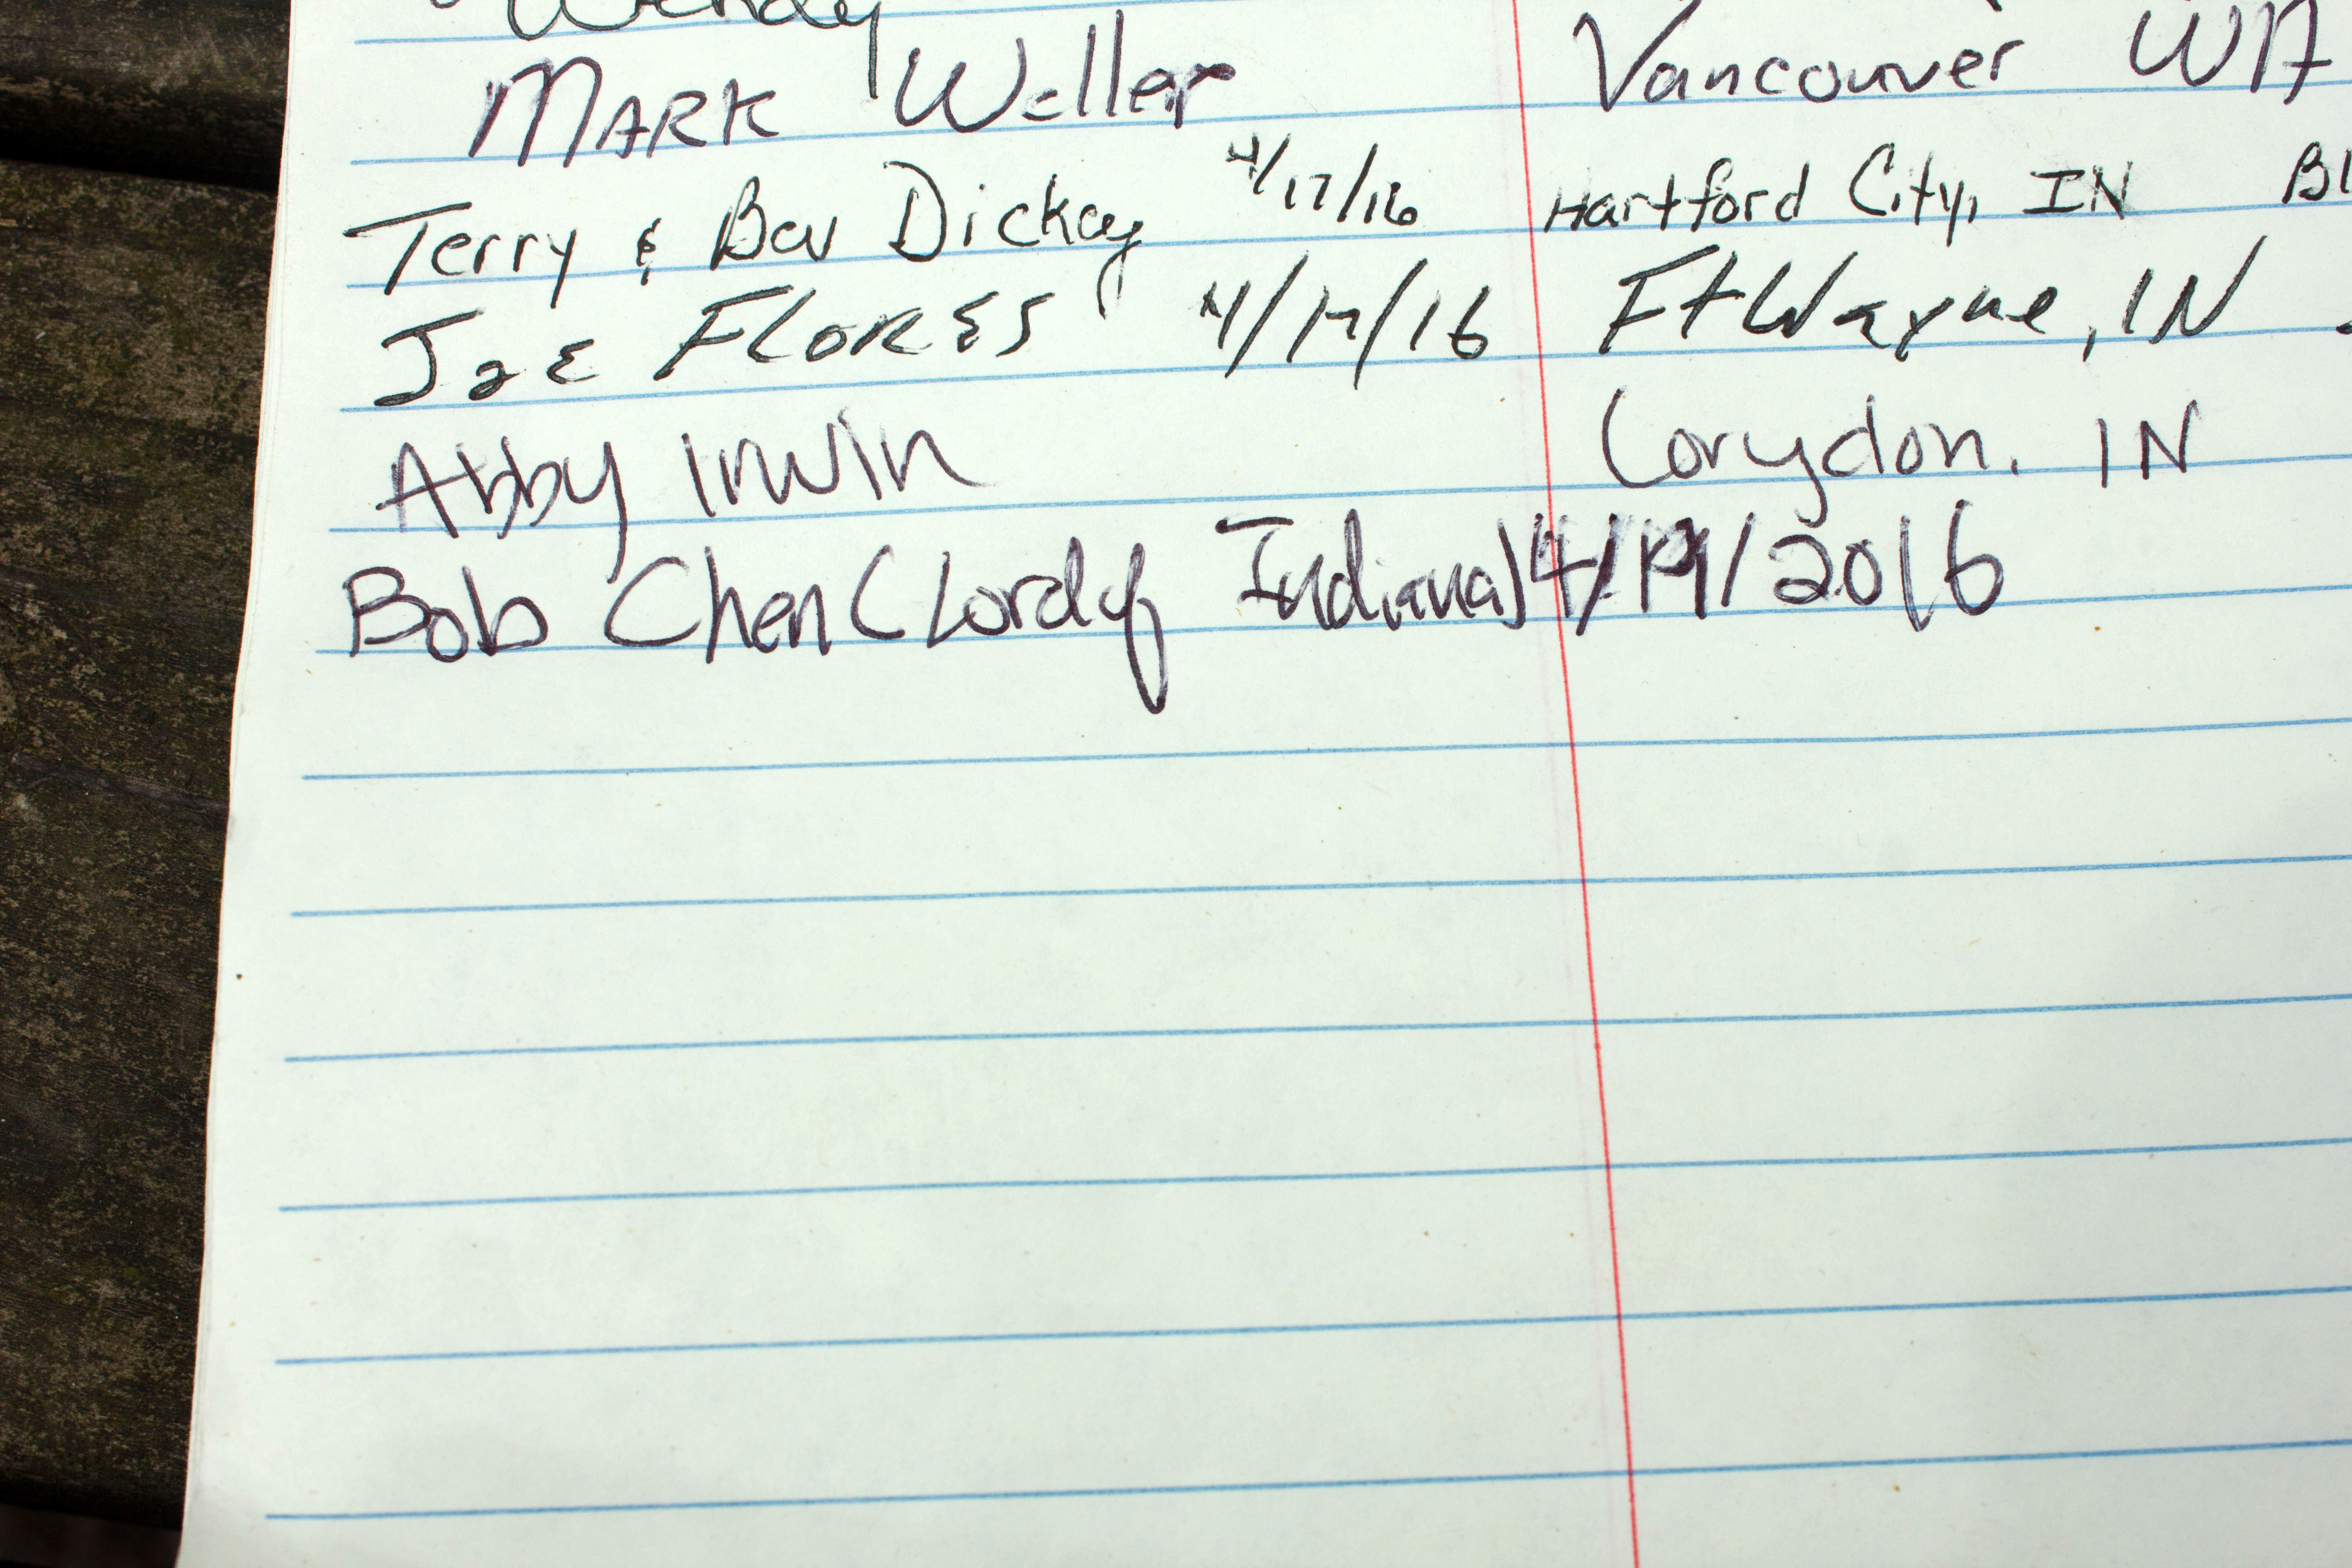 Wendy
MARK Weller Vancouver WA
Terry & Bev Dickey 4/17/16 Hartford City, IN Bl
Joe FLORES 4/17/16 Ft Wayne, IN
Abby Irwin Corydon, IN
Bob Chen (Lord of Indiana) 4/19/2016